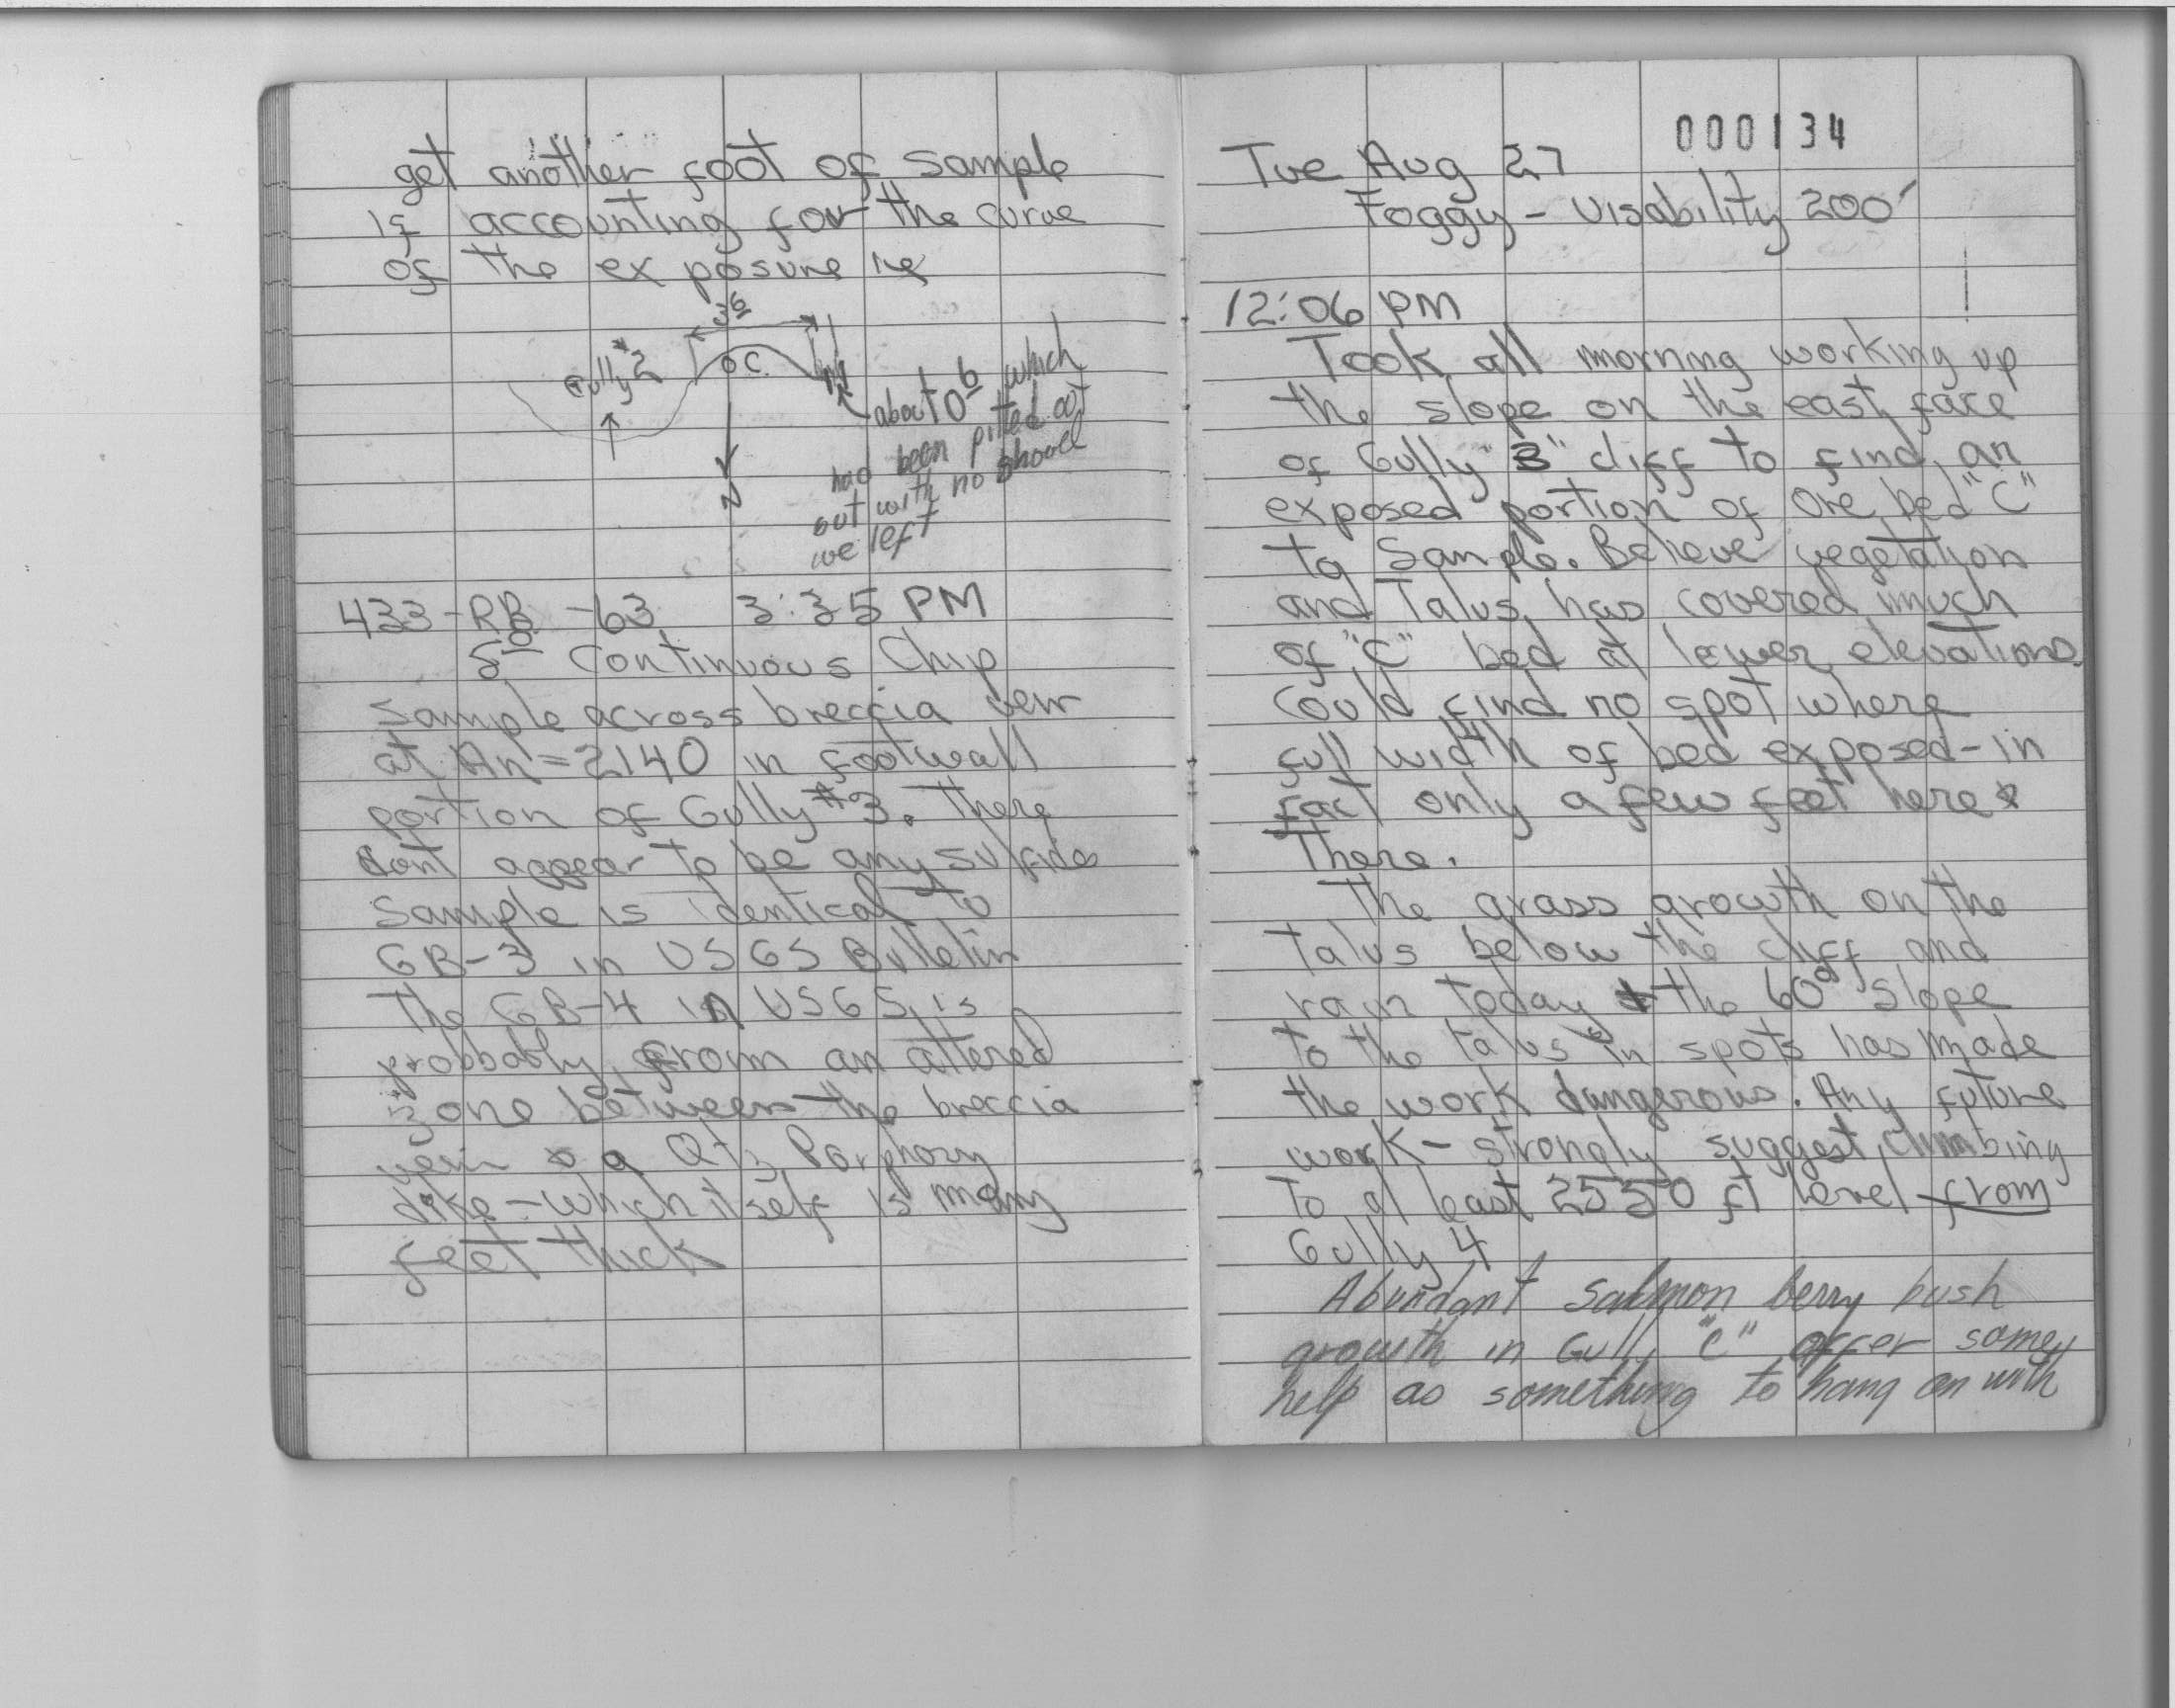 get another foot of sample
if accounting for the curve
of the exposure ie
3 6
Gully #2
O.C.
N
about 0 6 which
had been pitted out
but with no shovel
we left
433-RB-63 3:35 PM
5 0 Continuous Chip
Sample across breccia vein
at An = 2140 in footwall
portion of Gully #3. There
dont appear to be any sulfides
Sample is identical to
GB-3 in USGS Bulletin
The GB-4 in USGS is
probbably from an altered
zone between the breccia
vein & a Qtz Porphory
dike - which itself is many
feet thick
000134
Tue Aug 27
Foggy - Visability 200'
12:06 PM
Took all morning working up
the slope on the east face
of Gully "3" cliff to find an
exposed portion of Ore bed "C"
to Sample. Believe vegetation
and Talus has covered much
of "C" bed at lower elevations.
Could find no spot where
full width of bed exposed - in
fact only a few feet here &
There.
The grass growth on the
Talus below the cliff and
rain today & the 60° slope
to the talus in spots has made
the work dangerous. Any future
work - strongly suggest climbing
to at least 2550 ft level from
Gully 4
Abundant Salmon berry bush
growth in Gully "C" offer some
help as something to hang on with